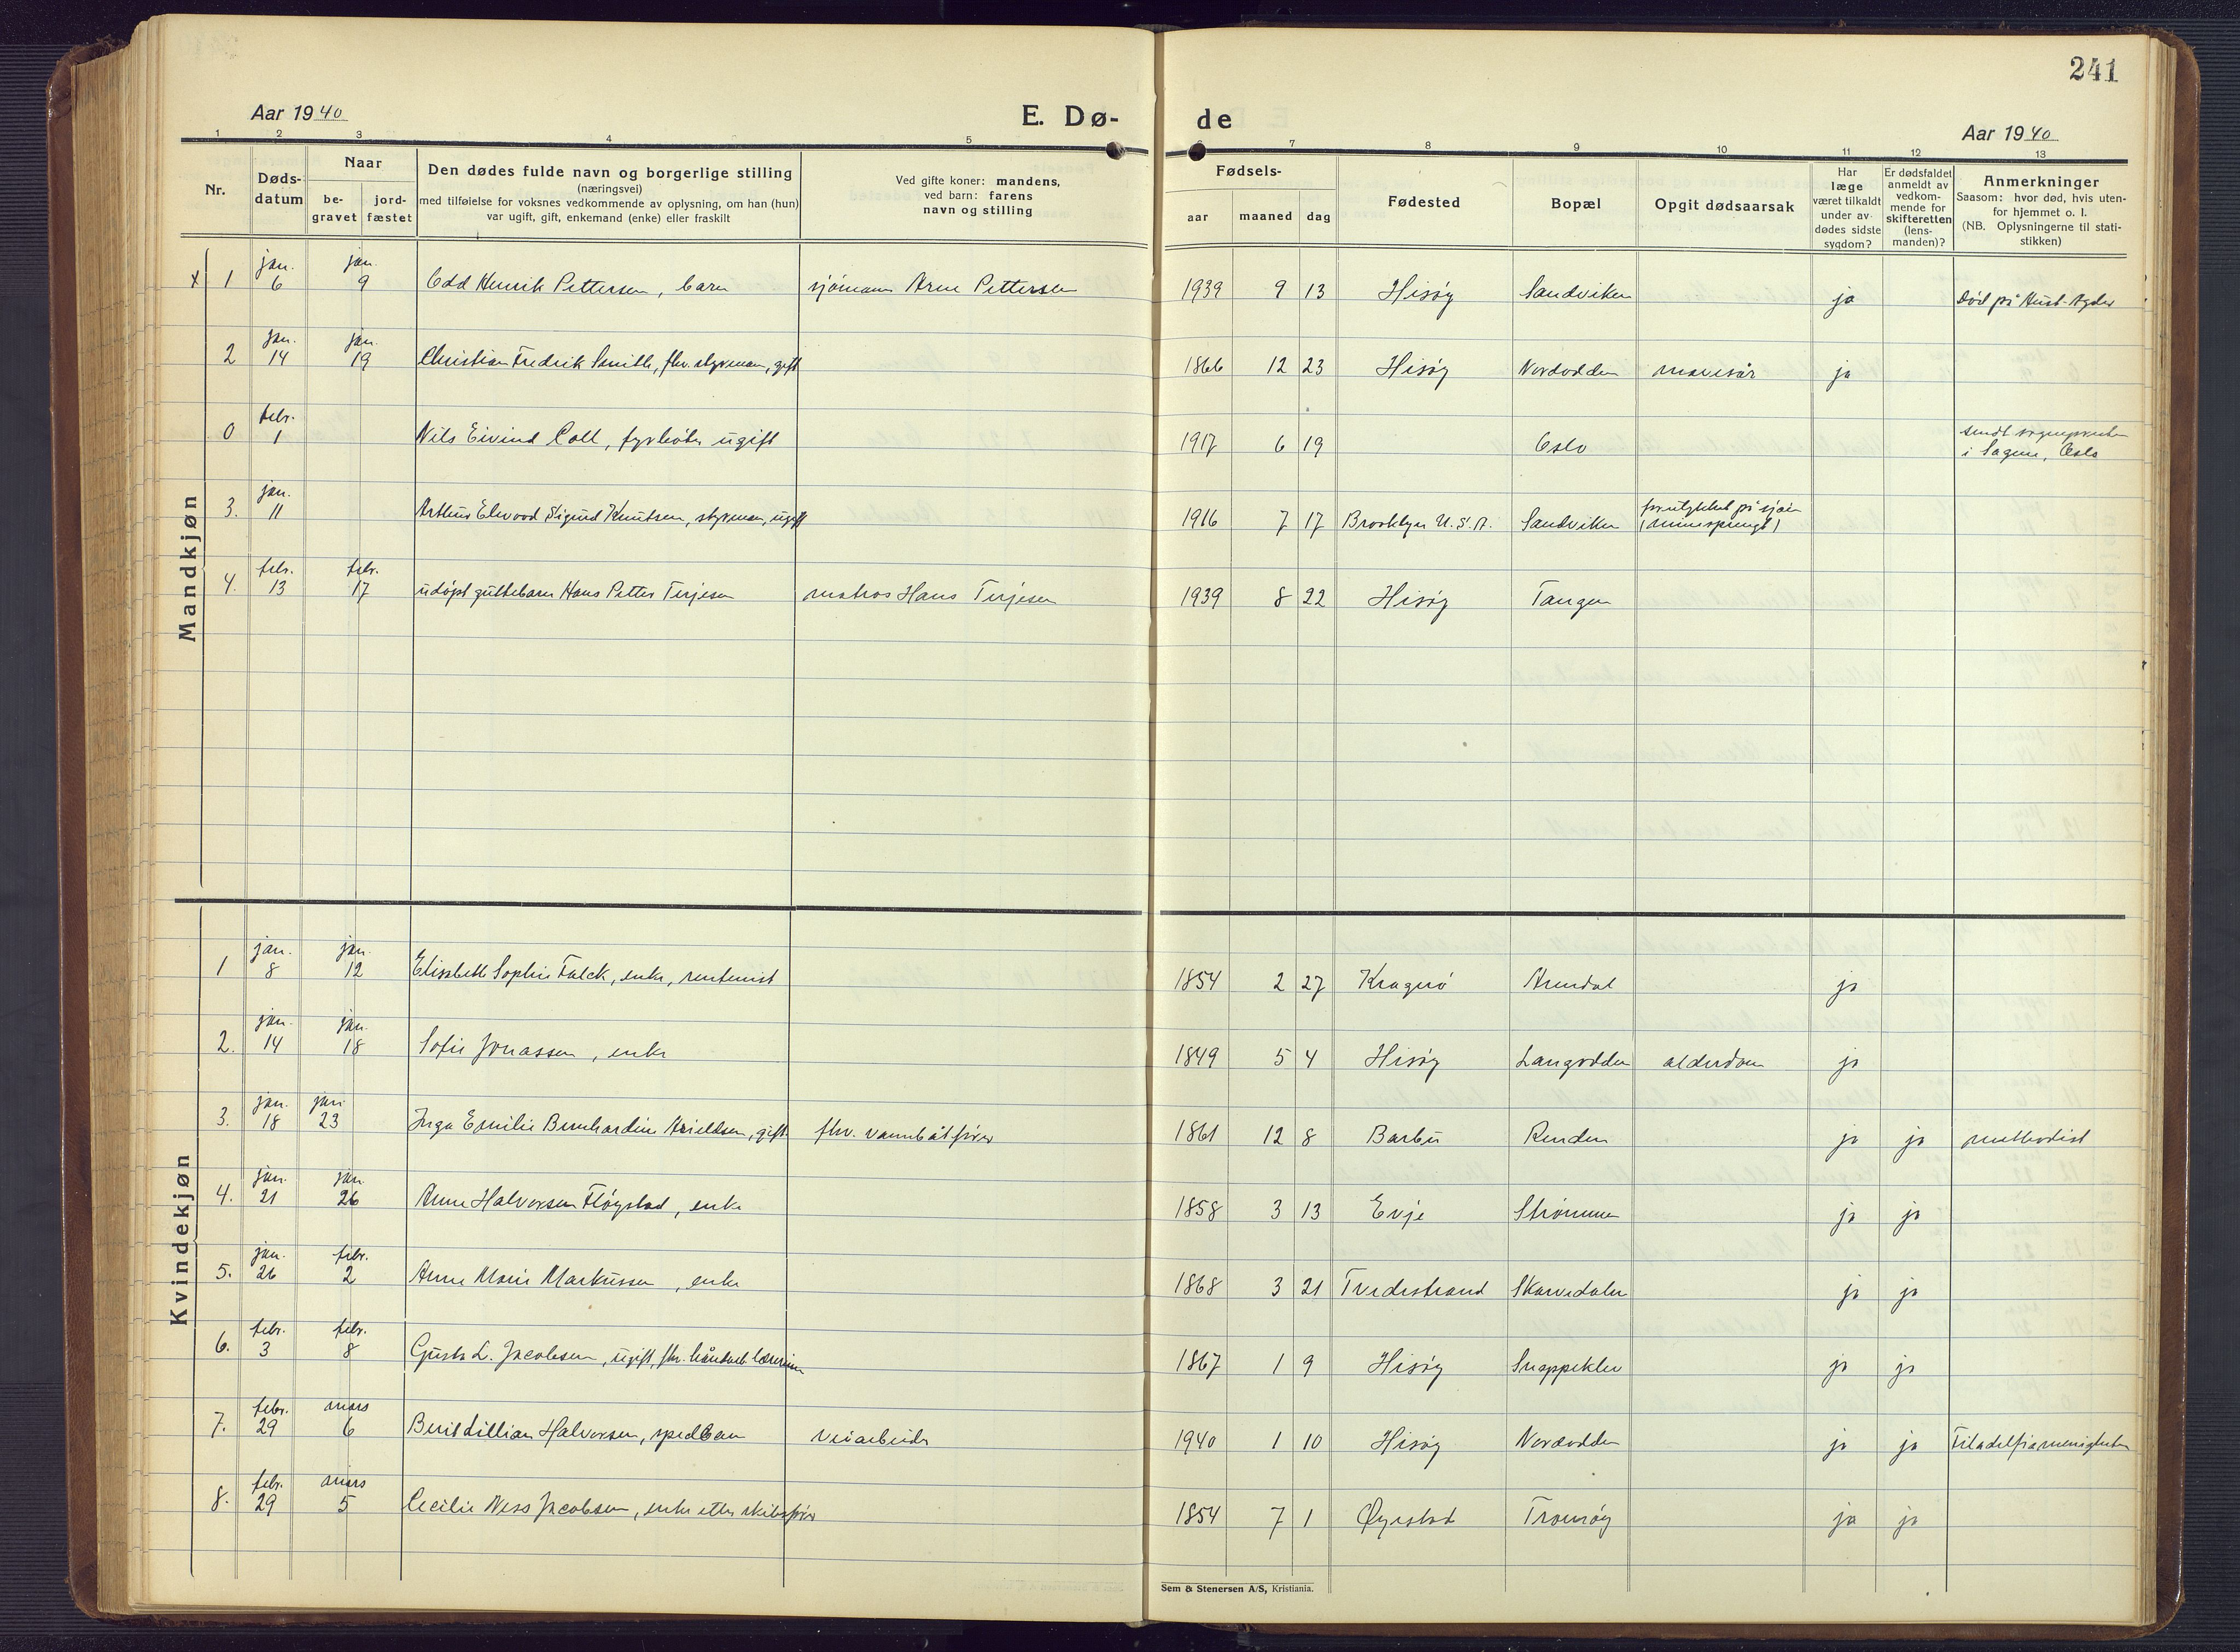 241
Aar 1940
E. Dø-
de
Aar 1940
1 2 3 4 5 6 7 8 9 10 11 12 13
Nr.
Døds-
datum
Naar
be-
gravet
jord-
fæstet
Den dødes fulde navn og borgerlige stilling
(næringsvei)
med tilføielse for voksnes vedkommende av oplysning, om han (hun)
var ugift, gift, enkemand (enke) eller fraskilt
Ved gifte koner: mandens,
ved barn: farens
navn og stilling
Fødsels-
aar maaned dag
Fødested
Bopæl
Opgit dødsaarsak
Har
læge
været tilkaldt
under av-
dødes sidste
sygdom?
Er dødsfaldet
anmeldt av
vedkom-
mende for
skifteretten
(lens-
manden)?
Anmerkninger
Saasom: hvor død, hvis uten-
for hjemmet o. l.
(NB. Oplysningerne til stati-
stikken)
Mandkjøn
jan. jan.
x 1 6 9 Odd Henrik Pettersen, barn sjömann Arne Pettersen 1939 9 13 Hisöy Sandviken ja död på Aust-Agder
jan. jan.
2 14 19 Christian Fredrik Smith, fhv. styrman, gift 1866 12 23 Hisöy Nordodden mavesår ja
febr.
0 1 Nils Eivind Coll, fyrböter ugift 1917 6 19 Oslo sendt sognepresten
i Sagene, Oslo
jan.
3. 11 Arthur Elwood Sigurd Knutsen, styrman, ugift 1916 7 17 Brooklyn U.S.A. Sandviken forulykket på sjöen
(minesprengt)
febr. febr.
4. 13 17 udöpt guttebarn Hans Petter Terjesen matros Hans Terjesen 1939 8 22 Hisöy Tangen
Kvindekjøn
jan. jan.
1 8 12 Elisabeth Sophie Falck, enke, rentenist 1854 2 27 Kragerö Arendal ja
jan. jan.
2. 14 18 Sofie Jonassen, enke 1849 5 4 Hisöy Langodden alderdom ja
jan. jan.
3. 18 23 Inga Emilie Bernhardine Arieldsen, gift fhv. vannbåtförer 1861 12 8 Barbu Renden ja ja methodist
jan. jan.
4. 21 26 Anne Halvorsen Flöystad, enke 1858 3 13 Evje Strömmen ja ja
jan. febr.
5. 26 2 Anne Marie Markussen, enke 1868 3 21 Tvedestrand Skarvedalen ja ja
febr. febr.
6. 3 8 Gusta L. Jacobsen, ugift, fhv. håndarb.lærerinne 1867 1 9 Hisöy Snappeklev ja ja
febr. mars
7. 29 6 Berit Lillian Halvorsen, spedbarn veiarbeider 1940 1 10 Hisöy Nordodden ja ja Filadelfiamenigheten
febr. mars
8. 29 5 Cecilie Ness Jacobsen, enke etter skibsförer 1854 7 1 Öyestad Tromöy ja ja
Sem & Stenersen A/S, Kristiania.